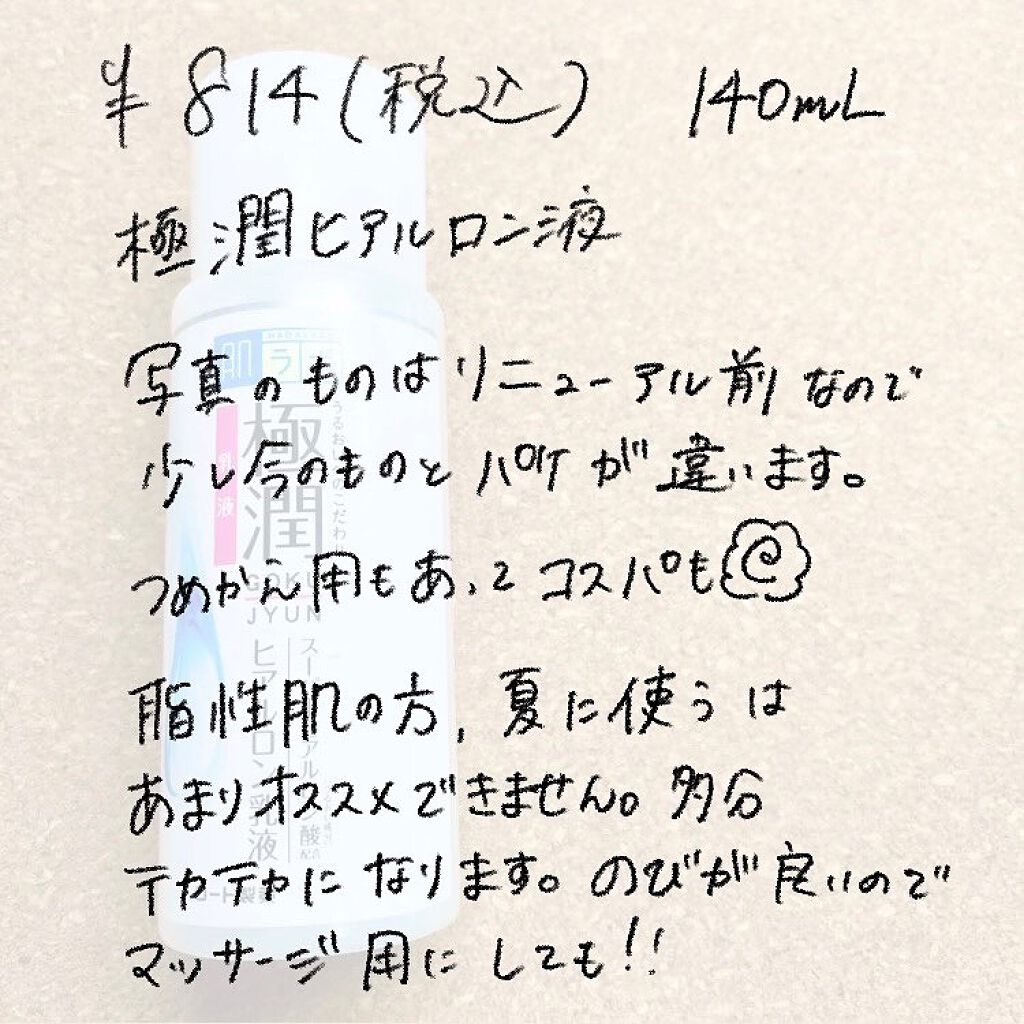 ¥814(税込) 140mL
極潤ヒアルロン液
写真のものはリニューアル前なので
少し今のものとパケが違います。
つめかえ用もあってコスパも
脂性肌の方、夏に使うは
あまりオススメできません。多分
テカテカになります。のびが良いので
マッサージ用にしても!!
肌ラ
極潤
GOKU
JYUN
乳液
ヒアルロン乳液